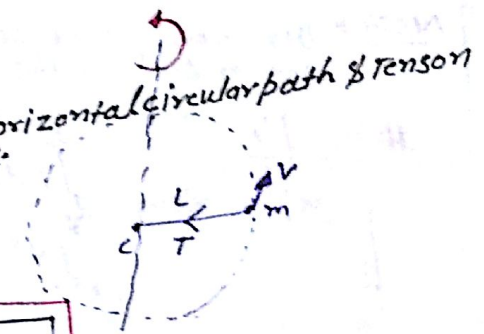 orizontal circular path & Tenson
L
V
m
C
T